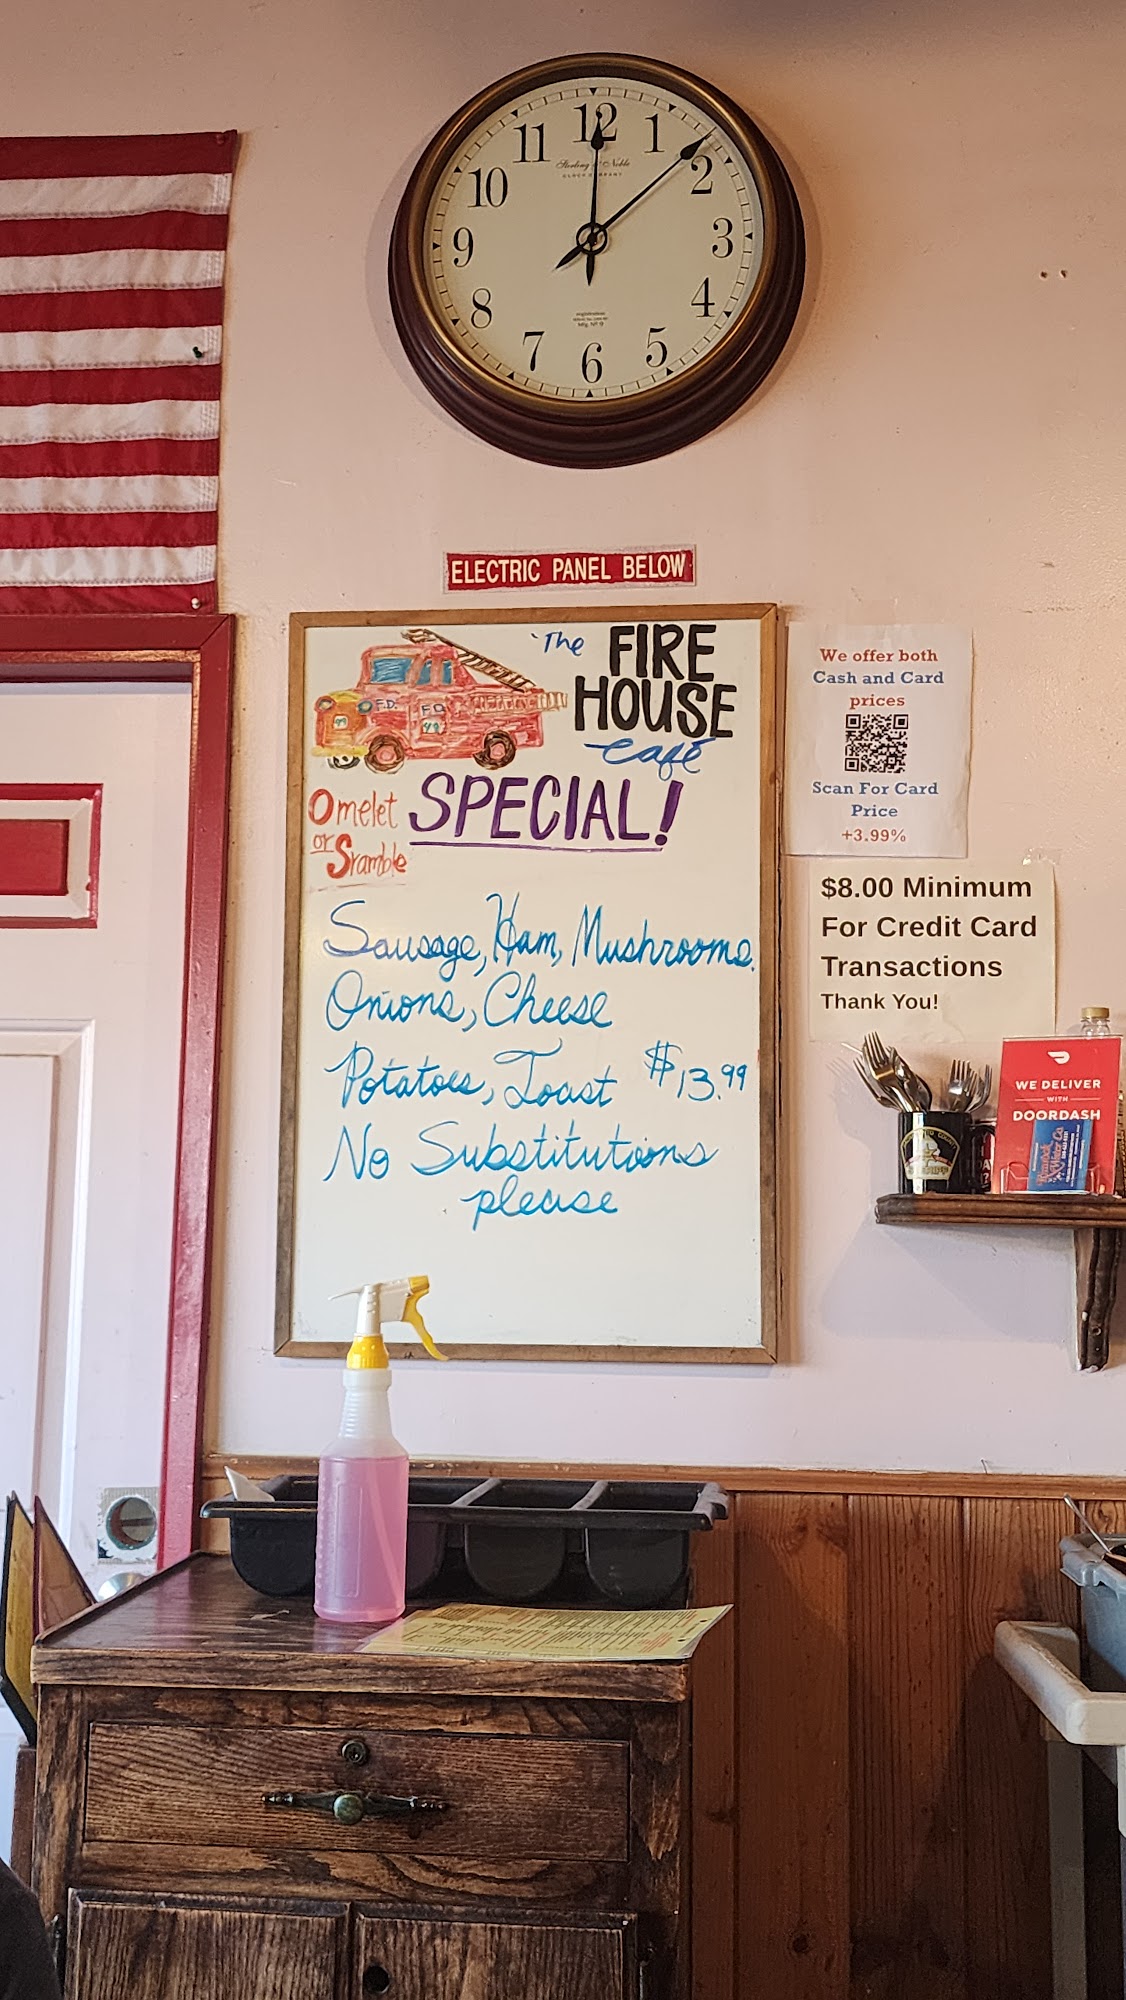 12
11
1
10
2
9
3
8
4
7
5
6
Sterling & Noble
CLOCK COMPANY
Mfg. No 9
ELECTRIC PANEL BELOW
The FIRE
HOUSE
Café
F.D.
F.D.
49
49
Omelet
or
Sramble
SPECIAL!
Sausage, Ham, Mushrooms.
Onions, Cheese
Potatoes, Toast $13.99
No Substitutions
please
We offer both
Cash and Card
prices
Scan For Card
Price
+3.99%
$8.00 Minimum
For Credit Card
Transactions
Thank You!
WE DELIVER
WITH
DOORDASH